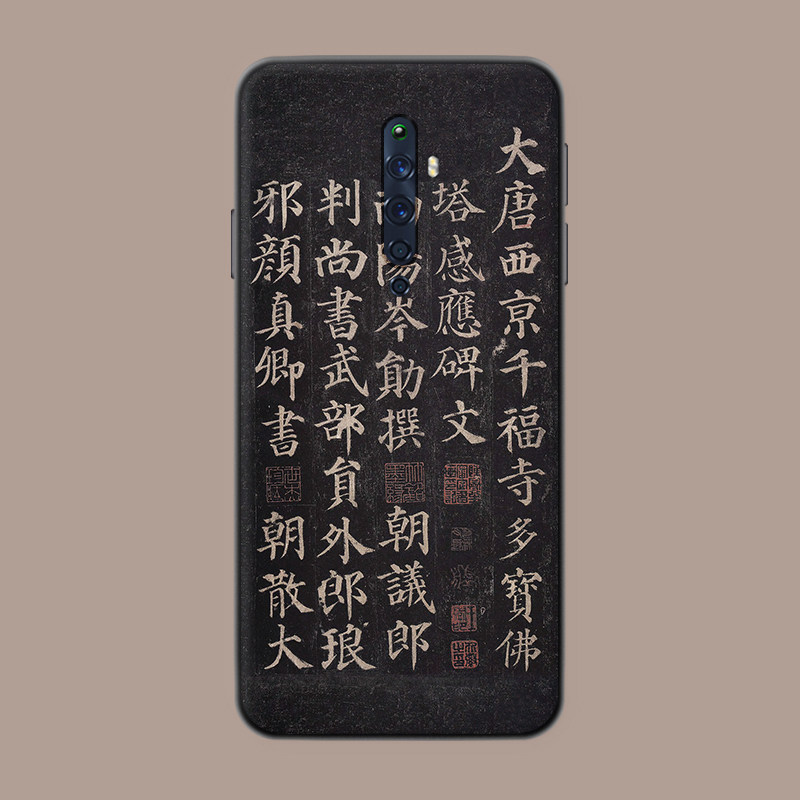 大唐西京千福寺多寶佛
塔感應碑文
陽岑勛撰 朝議郎
判尚書武部員外郎琅
邪顏真卿書 朝散大